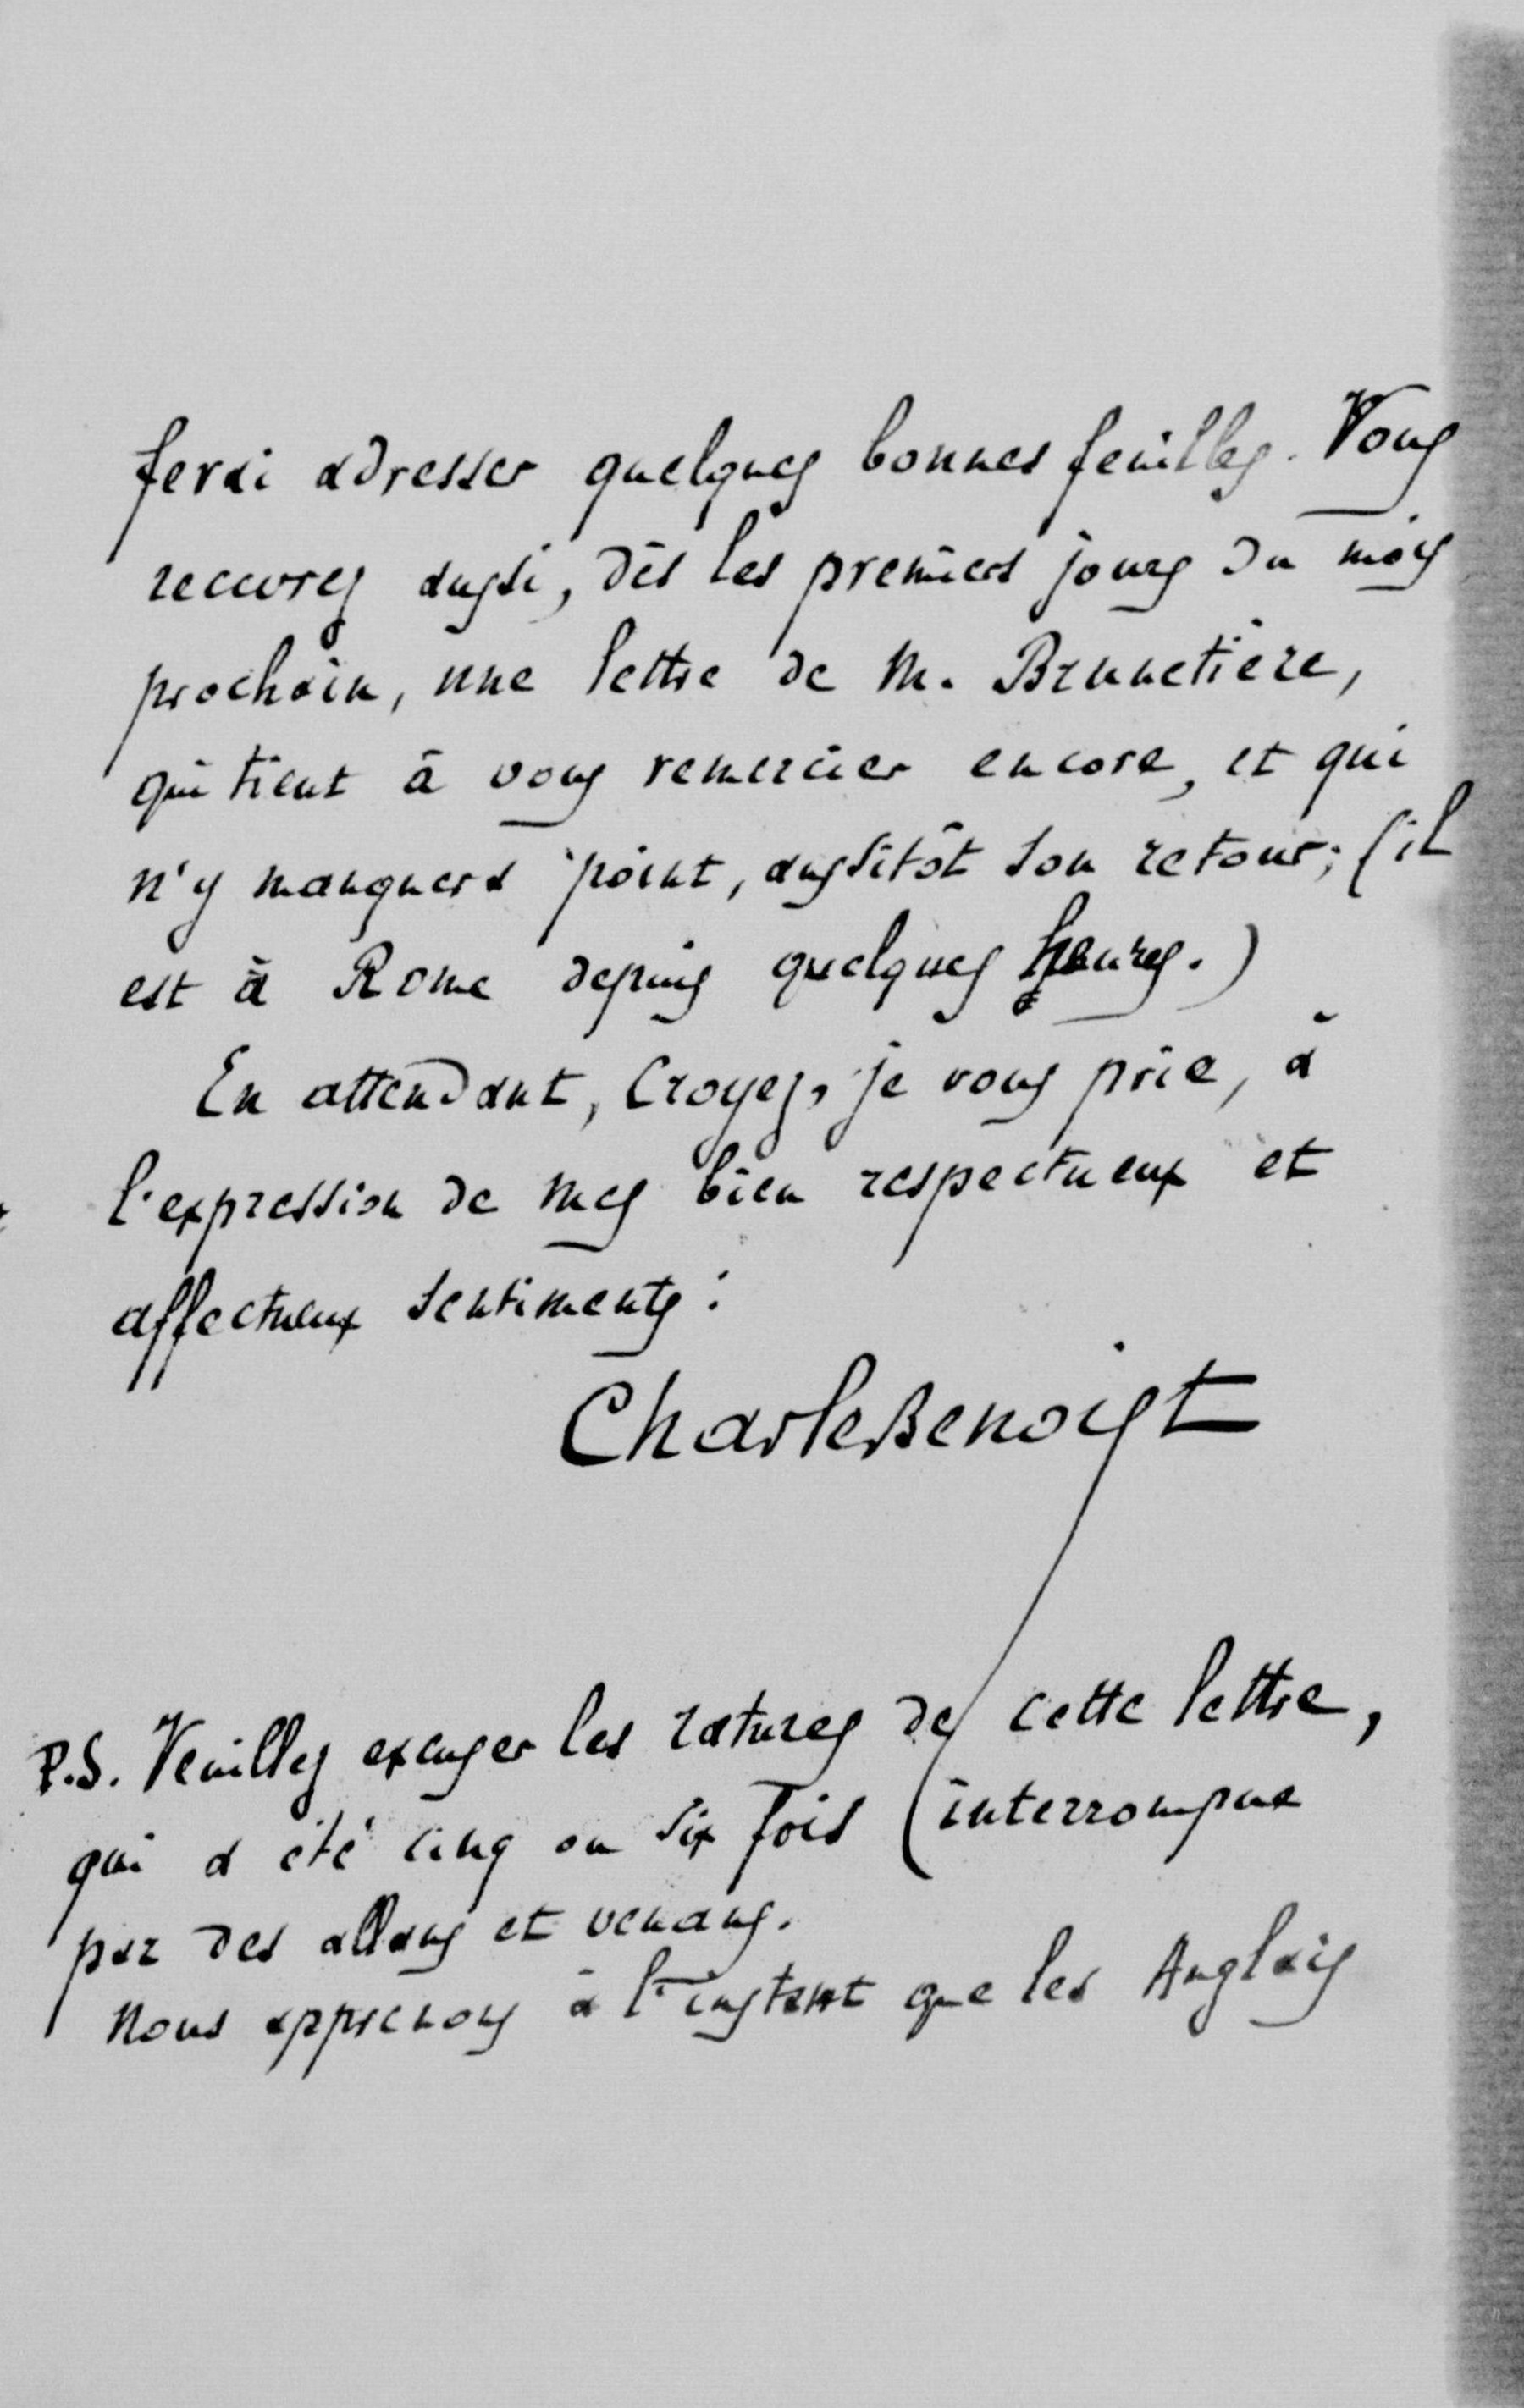 ferai adresser quelques bonnes feuilles. Vous
recevrez aussi, dès les premiers jours du mois
prochain, une lettre de M. Brunetière,
qui tient à vous remercier encore, et qui
n'y manquera point, aussitôt son retour; (il
est à Rome depuis quelques heures.)
En attendant, Croyez, je vous prie, à
l'expression de mes bien respectueux et
affectueux sentiments:
Charles Benoist
P.S. Veuillez excuser les ratures de cette lettre,
qui a été cinq ou six fois interrompue
par des allans et venans.
Nous apprenons à l'instant que les Anglais